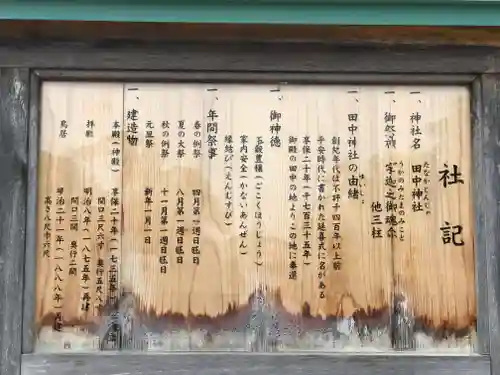 社記
一、神社名
田中神社
たなかじんじゃ
一、御祭神
宇迦之御魂命
うかのみたまのみこと
他三柱
一、田中神社の由緒
ゆいしょ
創祀年代は不詳千四百年以上前
平安時代に書かれた延喜式に名がある
享保二十年(千七百三十五年)
御殿の田中の地よりこの地に奉還
一、御神徳
五穀豊穣(ごこくほうじょう)
家内安全(かないあんぜん)
縁結び(えんむすび)
一、年間祭事
春の例祭 四月第一週日曜日
夏の大祭 八月第一週日曜日
秋の例祭 十一月第一週日曜日
元旦祭 新年一月一日
一、建造物
本殿(神殿) 享保二十年(一七三五年)
間口三尺六寸 奥行五尺八寸
拝殿 明治八年(一八七五年)再建
間口三間 奥行二間
鳥居 明治二十一年(一八八八年)再建
高さ八尺六寸